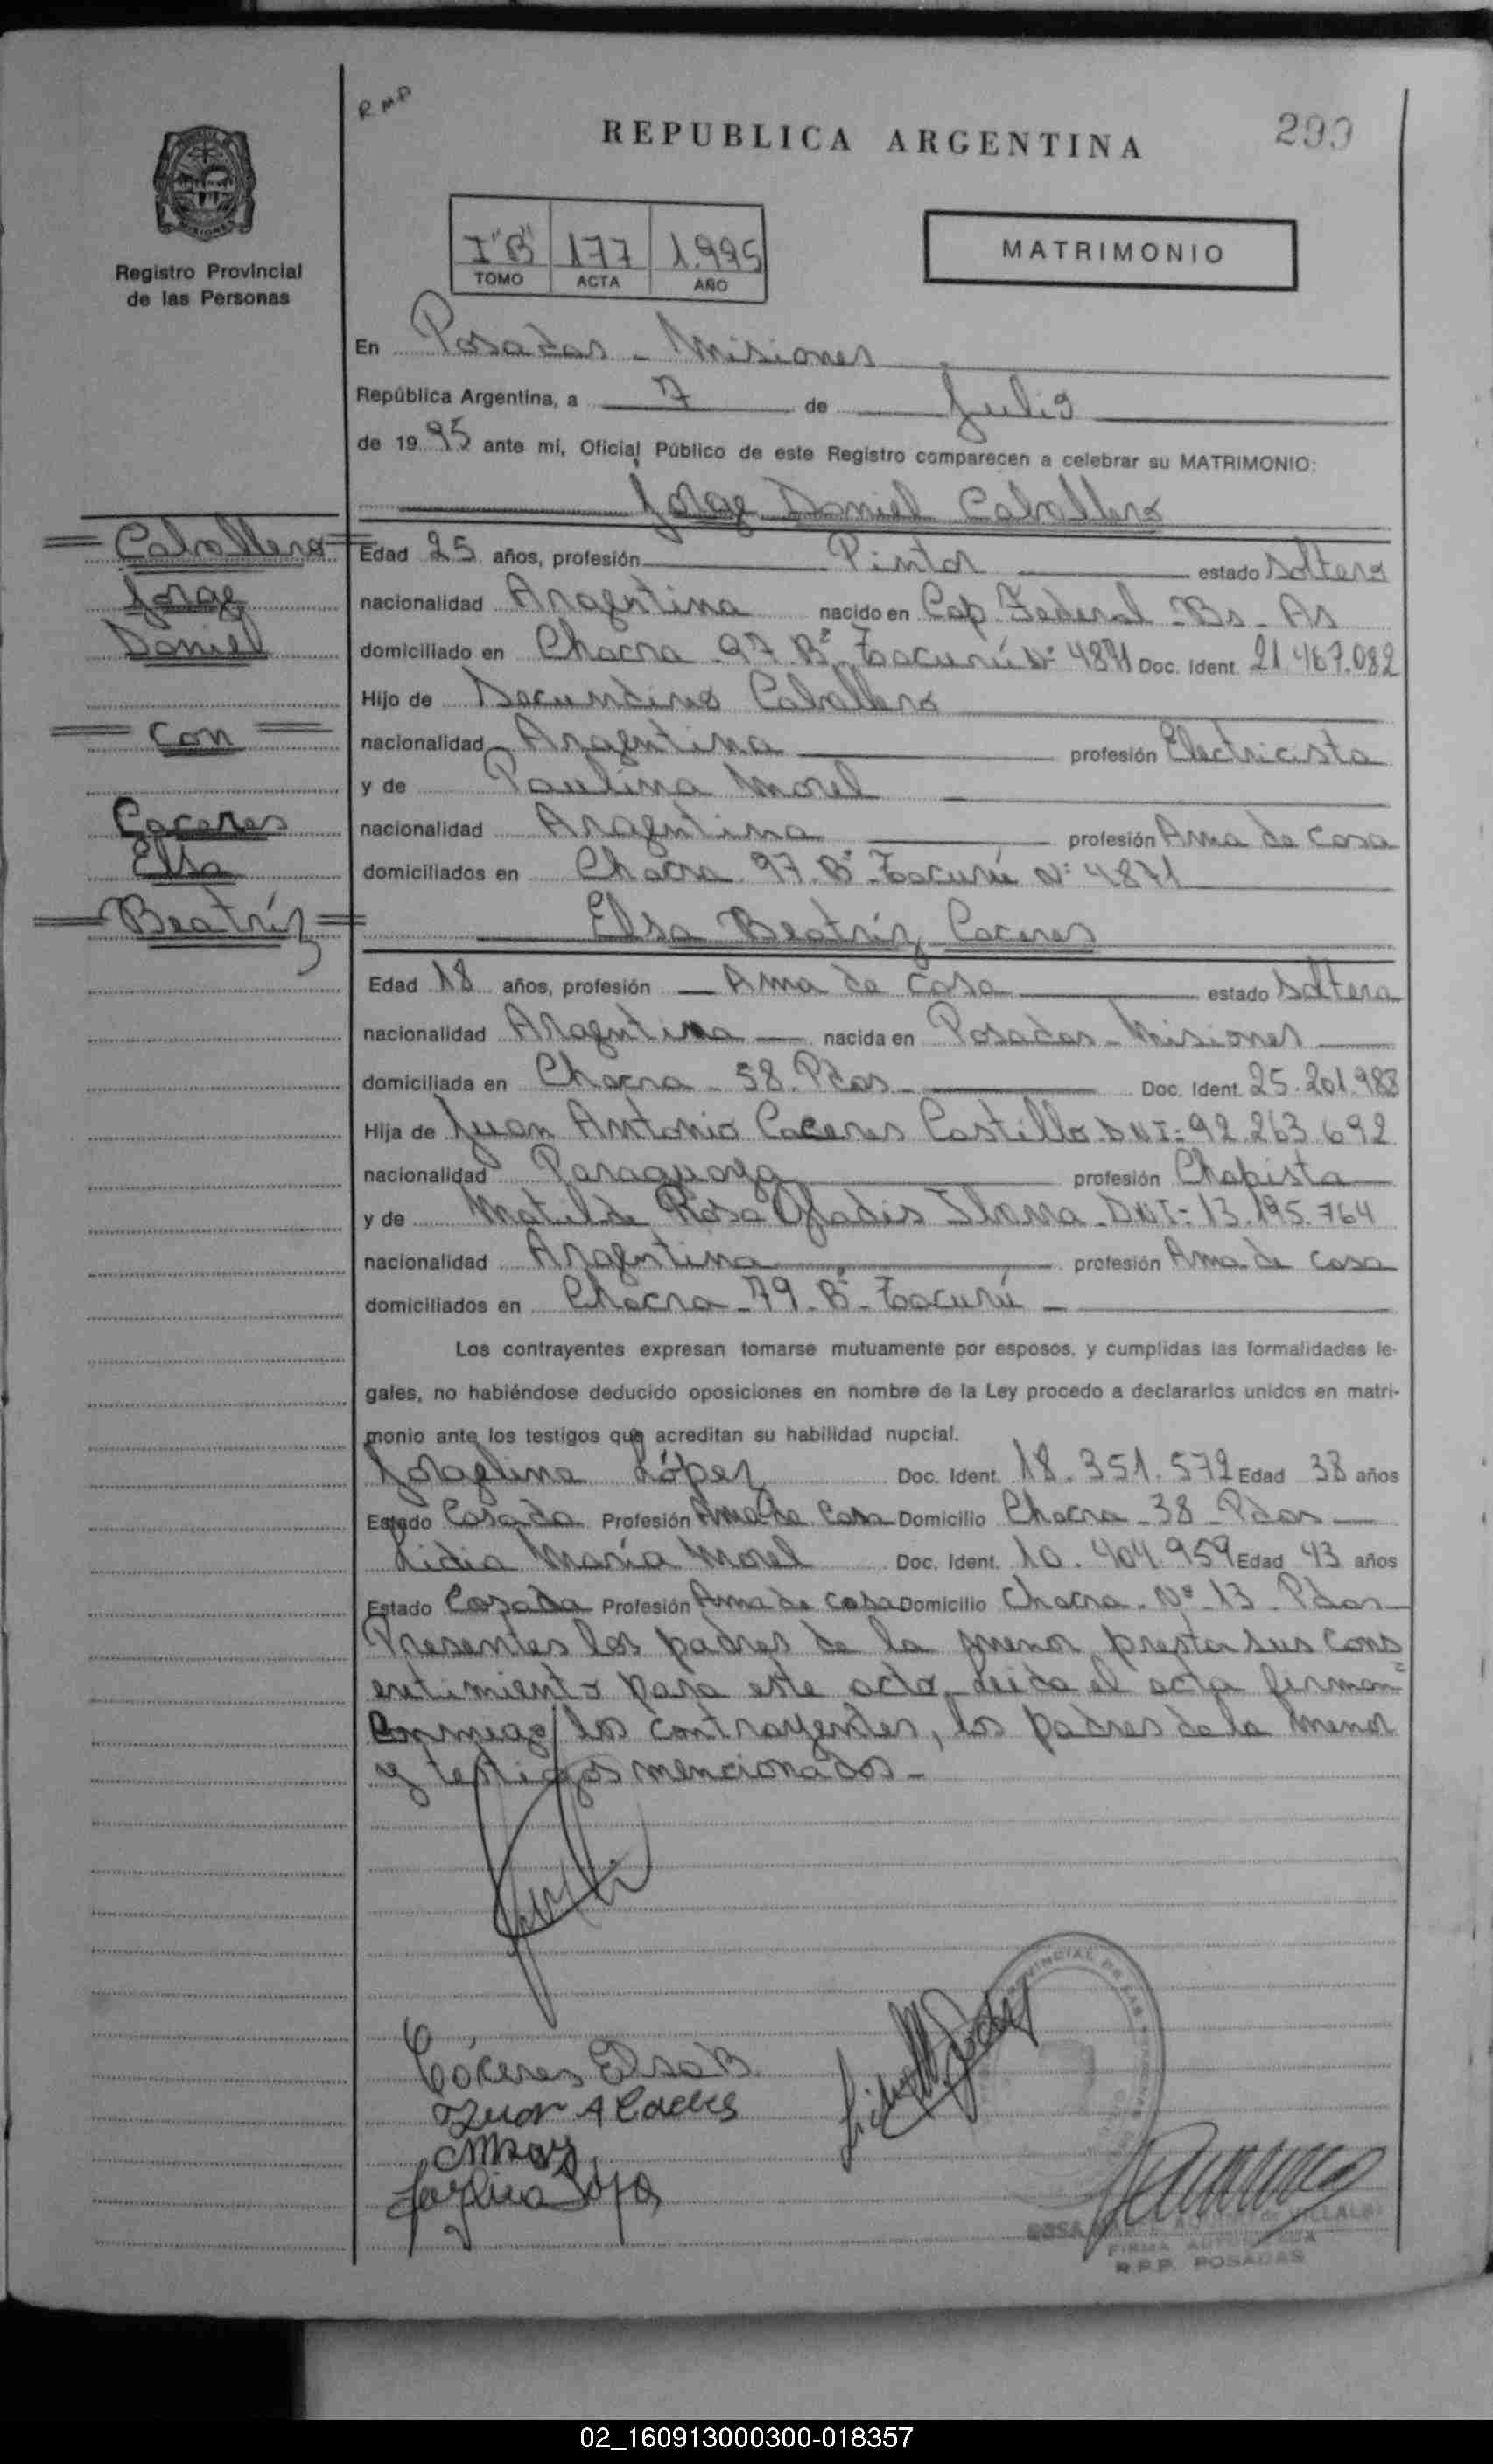 RMP
REPUBLICA ARGENTINA
299
Registro Provincial
de las Personas
I"B" 177 1.995
TOMO ACTA AÑO
MATRIMONIO
En Posadas - Misiones
República Argentina, a 7 de Julio
de 1995 ante mi, Oficial Público de este Registro comparecen a celebrar su MATRIMONIO:
Jorge Daniel Caballero
Caballero
Jorge
Daniel
Con
Caceres
Elsa
Beatríz
Edad 25 años, profesión Pintor estado Soltero
nacionalidad Argentina nacido en Cap. Federal - Bs - As
domiciliado en Chacra 97. Bº Tacurú Nº 4871 Doc. Ident. 21.467.082
Hijo de Secundino Caballero
nacionalidad Argentina profesión Electricista
y de Paulina Morel
nacionalidad Argentina profesión Ama de Casa
domiciliados en Chacra 97. Bº Tacurú Nº 4871
Elsa Beatríz Caceres
Edad 18 años, profesión Ama de Casa estado Soltera
nacionalidad Argentina nacida en Posadas - Misiones
domiciliada en Chacra - 58. Pdas - Doc. Ident. 25.201.983
Hija de Juan Antonio Caceres Castillo DNI= 92.263.692
nacionalidad Paraguaya profesión Chapista
y de Matilde Rosa Gladis DNI= 13.195.764
nacionalidad Argentina profesión Ama de Casa
domiciliados en Chacra - 79 - Bº - Tacurú -
Los contrayentes expresan tomarse mutuamente por esposos, y cumplidas las formalidades le-
gales, no habiéndose deducido oposiciones en nombre de la Ley procedo a declararlos unidos en matri-
monio ante los testigos que acreditan su habilidad nupcial.
Jorgelina López Doc. Ident. 18.351.572 Edad 38 años
Estado Casada Profesión Ama de Casa Domicilio Chacra - 38 - Pdas -
Lidia María Morel Doc. Ident. 10.404.959 Edad 43 años
Estado Casada Profesión Ama de Casa Domicilio Chacra - Nº 13 - Pdas -
Presentes los padres de la menor presta sus cons
entimiento para este acto, leída el acta firman=
Conmigo los contrayentes, los padres de la menor
y testigos mencionados -
Cáceres Elsa B
Juan A Caceres
FIRMA AUTORIZADA
R.P.P. POSADAS
02_160913000300-018357